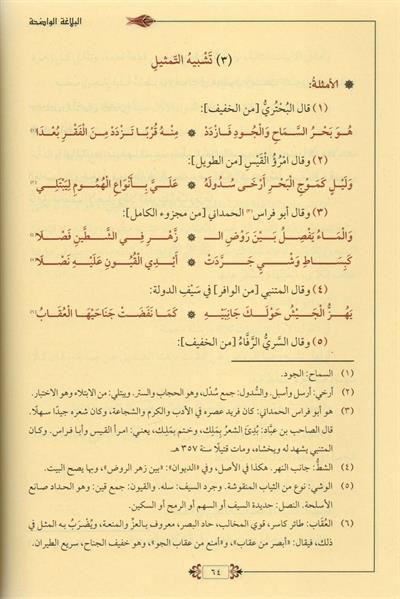 البلاغة الواضحة
(٣) تَشْبِيهُ التَّمْثِيلِ
* الأمثلة:
(١) قال البُحْتُرِيُّ [من الخفيف]:
هُوَ بَحْرُ السَّمَاحِ وَالْجُودِ فَازْدَدْ * مِنْهُ قُرْبًا تَزْدَدْ مِنَ الْفَقْرِ بُعْدَا(١)
(٢) وقال امْرُؤُ الْقَيْسِ [من الطويل]:
وَلَيْلٍ كَمَوْجِ الْبَحْرِ أَرْخَى سُدُولَهُ * عَلَيَّ بِأَنْوَاعِ الْهُمُومِ لِيَبْتَلِي(٢)
(٣) وقال أبو فراس(٣) الحمداني [من مجزوء الكامل]:
وَالْمَاءُ يَفْصِلُ بَيْنَ رَوْضِ الـ * زَّهْرِ فِي الشَّطَّيْنِ فَصْلَا(٤)
كَبِسَاطِ وَشْيٍ جَرَّدَتْ * أَيْدِي الْقُيُونِ عَلَيْهِ نَصْلَا(٥)
(٤) وقال المتنبي [من الوافر] في سَيْفِ الدولة:
يَهُزُّ الْجَيْشُ حَوْلَكَ جَانِبَيْهِ * كَمَا نَفَضَتْ جَنَاحَيْهَا الْعُقَابُ(٦)
(٥) وقال السَّرِيُّ الرَّفَّاءُ [من الخفيف]:
(١) السماح: الجود.
(٢) أرخي: أرسل وأسبل. والسُّدول: جمع سُدْل، وهو الحجاب والستر. ويبتلي: من الابتلاء وهو الاختبار.
(٣) هو أبو فراس الحمداني: كان فريد عصره في الأدب والكرم والشجاعة، وكان شعره جيدًا سهلًا.
قال الصاحب بن عبَّاد: بُدِئَ الشعرُ بِمَلِك، وختم بمَلِك، يعني: امرأ القيس وأبا فراس. وكان
المتنبي يشهد له ويخشاه، ومات قتيلًا سنة ٣٥٧ هـ.
(٤) الشطُّ: جانب النهر. هكذا في الأصل، وفي «الديوان»: «بين زهر الروض»، وبها يصح البيت.
(٥) الوشي: نوع من الثياب المنقوشة. وجرد السيف: سله. والقيون: جمع قين: وهو الحداد صانع
الأسلحة. النصل: حديدة السيف أو السهم أو الرمح أو السكين.
(٦) العُقَاب: طائر كاسر، قوي المخالب، حاد البصر، معروف بالعزِّ والمنعة، ويُضْرَبُ به المثل في
ذلك، فيقال: «أبصر من عقاب»، و«أمنع من عقاب الجو»، وهو خفيف الجناح، سريع الطيران.
٦٤